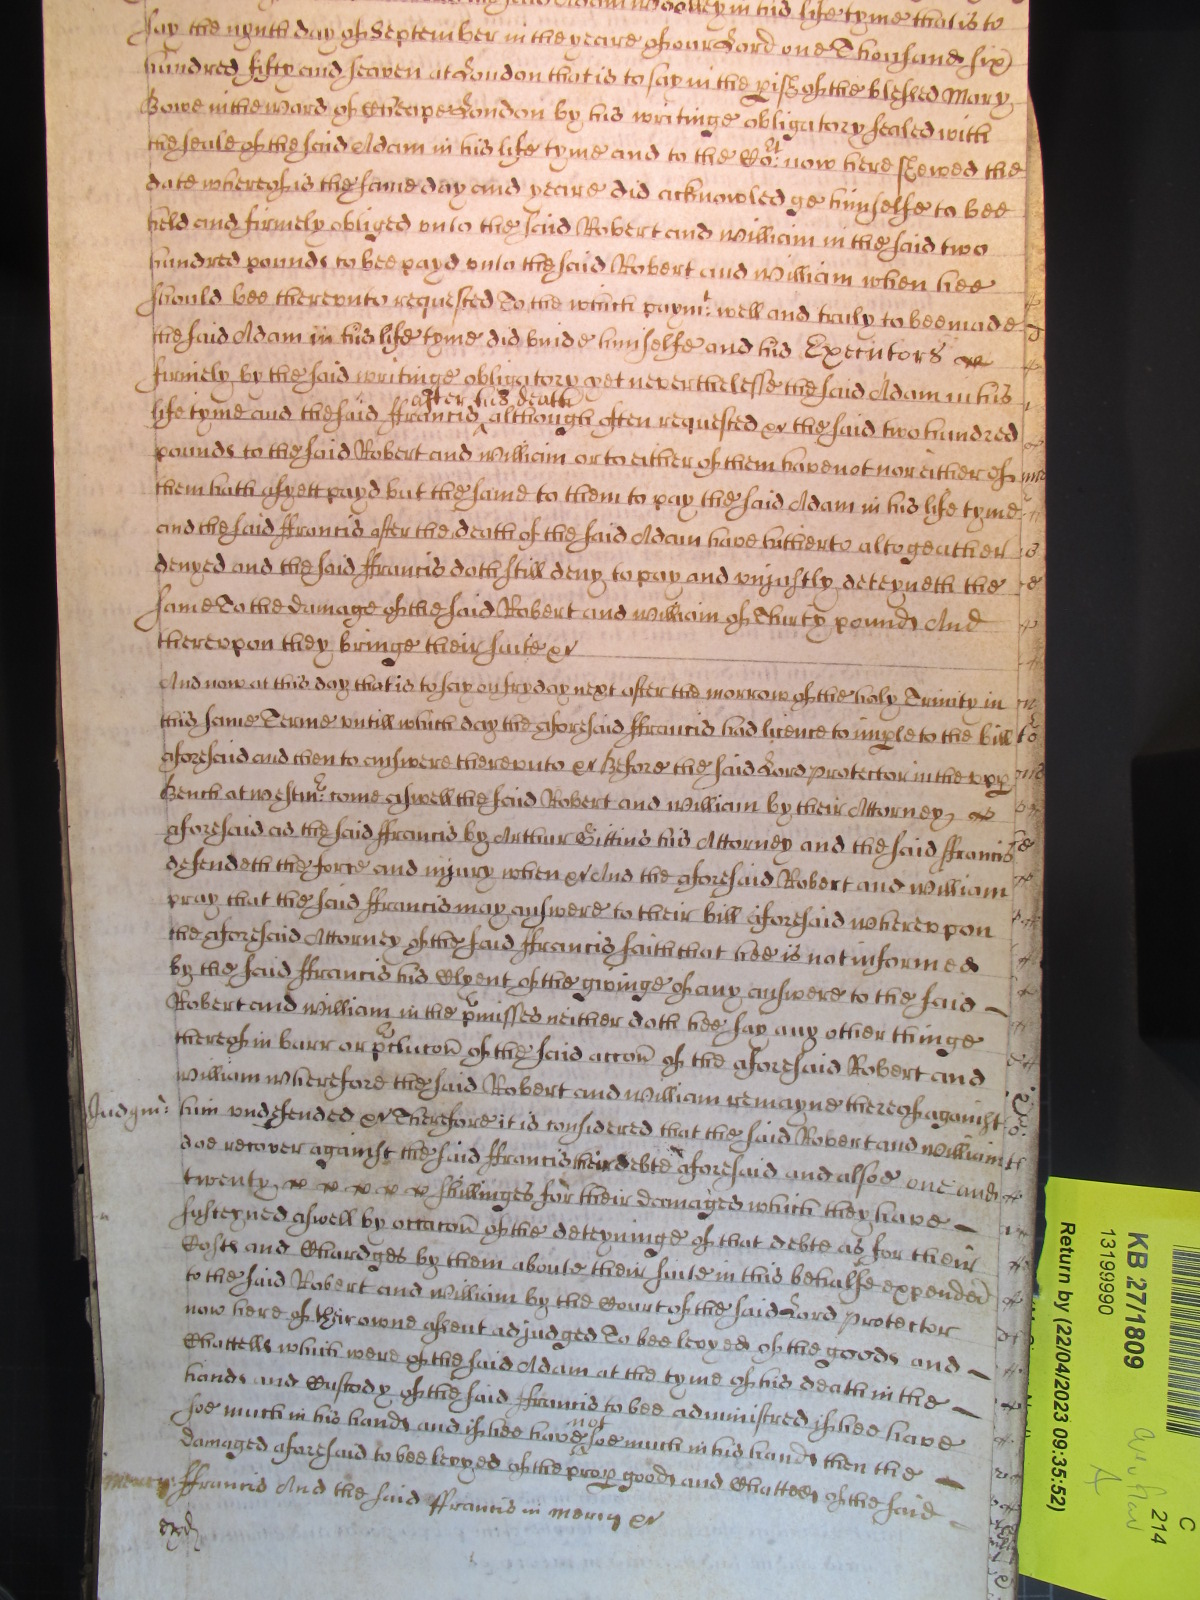 the said Adam Woolley in his life tyme that is to
say the nynth day of September in the yeare of our Lord one Thousand six
hundred fifty and seaven at London that is to say in the pish of the blessed Mary
Bowe in the Ward of Cheape London by his writinge obligatory sealed with
the seale of the said Adam in his life tyme and to the Cort now here shewed the
date whereof is the same day and yeare did acknowledge himselfe to bee
held and firmely obliged unto the said Robert and William in the said two
hundred pounds to bee payd unto the said Robert and William when hee
should bee thereunto requested To the which paymt: well and truly to bee made
the said Adam in his life tyme did binde himselfe and his Executors
firmely by the said writinge obligatory yet neverthelesse the said Adam in his
life tyme and the said ffrancis after his death although often requested &c the said two hundred
pounds to the said Robert and William or to either of them have not nor either of
them hath as yett payd but the same to them to pay the said Adam in his life tyme
and the said ffrancis after the death of the said Adam have hitherto altogeather
denyed and the said ffrancis doth still deny to pay and unjustly deteyneth the
same To the damage of the said Robert and William of Thirty pounds And
thereupon they bringe their suite &c
And now at this day that is to say on fryday next after the morrow of the holy Trinity in
this same Terme untill which day the aforesaid ffrancis had licence to imple to the bill
aforesaid and then to answere thereunto &c Before the said Lord Protector in the upp
Bench at Westmr: come aswell the said Robert and William by their Attorney
aforesaid as the said ffrancis by Arthur Gittins his Attorney and the said ffrancis
defendeth the force and injury when &c And the aforesaid Robert and William
pray that the said ffrancis may answere to their bill aforesaid whereupon
the aforesaid Attorney of the said ffrancis saith that hee is not informed
by the said ffrancis his Clyent of the givinge of any answere to the said
Robert and William in the pmisses neither doth hee say any other thinge
thereof in barr or pclucon of the said accon of the aforesaid Robert and
William wherefore the said Robert and William remayne thereof against
Judgmt: him undefended &c Therefore it is considered that the said Robert and William
doe recover against the said ffrancis their debte aforesaid and alsoe one and
twenty shillinges for their damages which they have
susteyned aswell by occacon of the deteyninge of that debte as for their
Costs and Chardges by them aboute their suite in this behalfe expended
to the said Robert and William by the Court of the said Lord Protector
now here of their owne assent adjudged To bee levyed of the goods and
Chattells which were of the said Adam at the tyme of his death in the
hands and Custody of the said ffrancis to bee administred if hee have
soe much in his hands and if hee have not soe much in his hands then the
damages aforesaid to bee levyed of the prop goods and Chattells of the said
Mercy: ffrancis And the said ffrancis in mercy &c
KB 27/1809
13199990
Return by (22/04/2023 09:35:52)
C
214
A